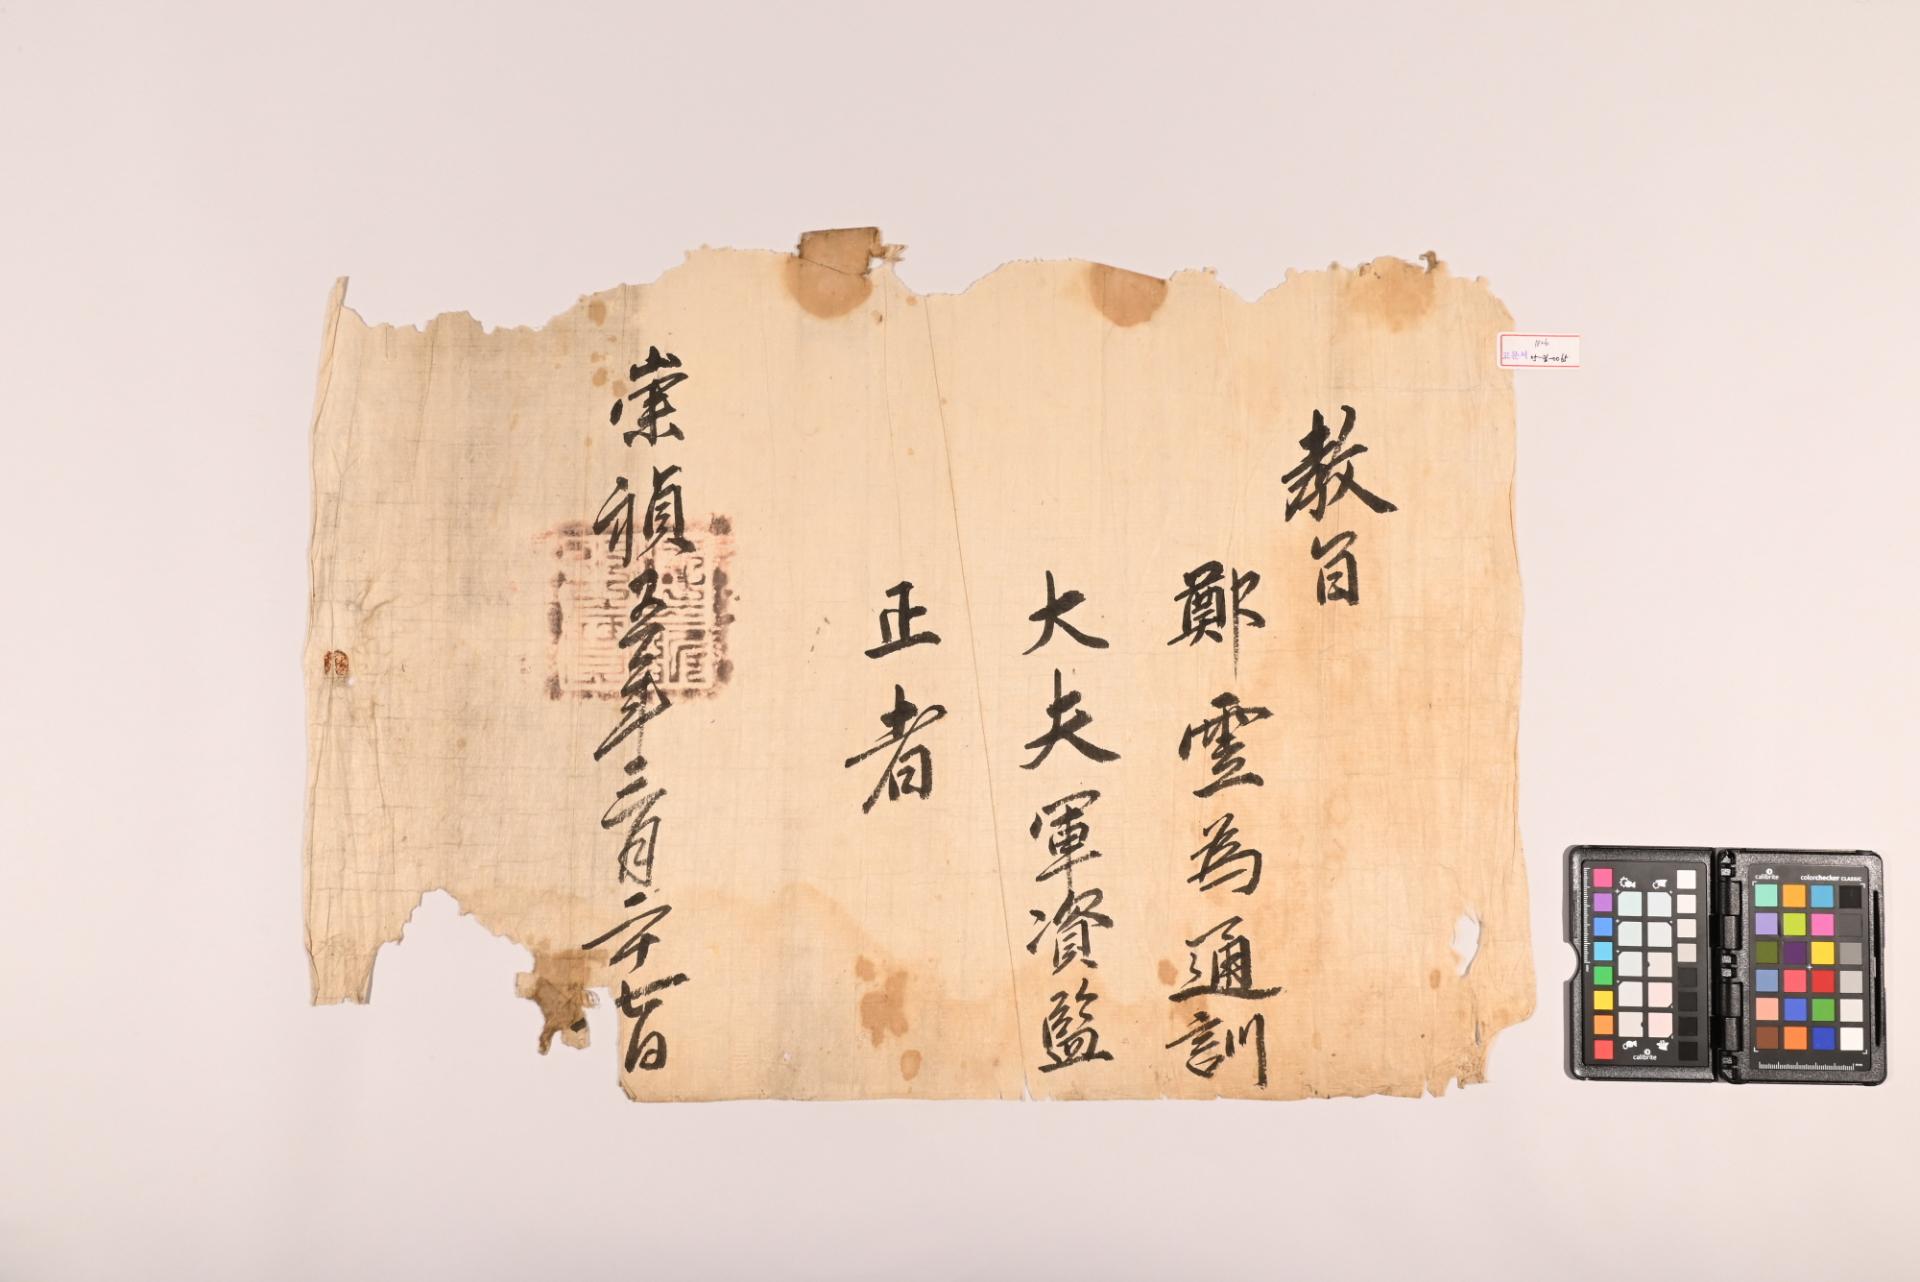 教旨
鄭雲為通訓
大夫軍資監
正者
崇禎五年三月二十七日
고문서
calibrite
colorchecker CLASSIC
calibrite